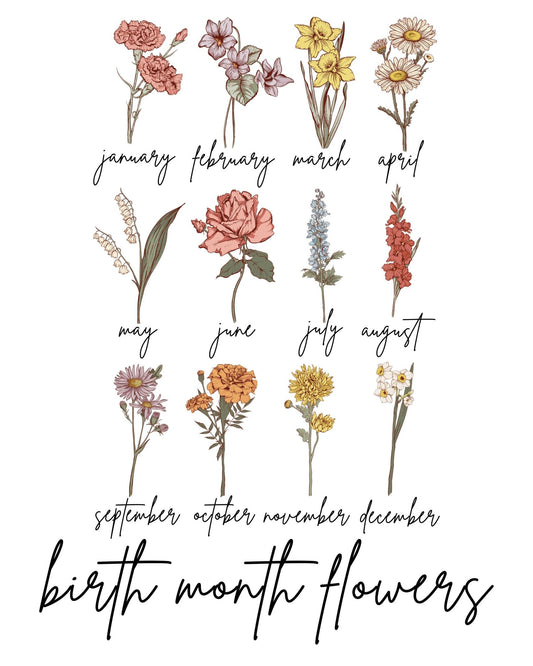 january february march april
may june july august
september october november december
birth month flowers